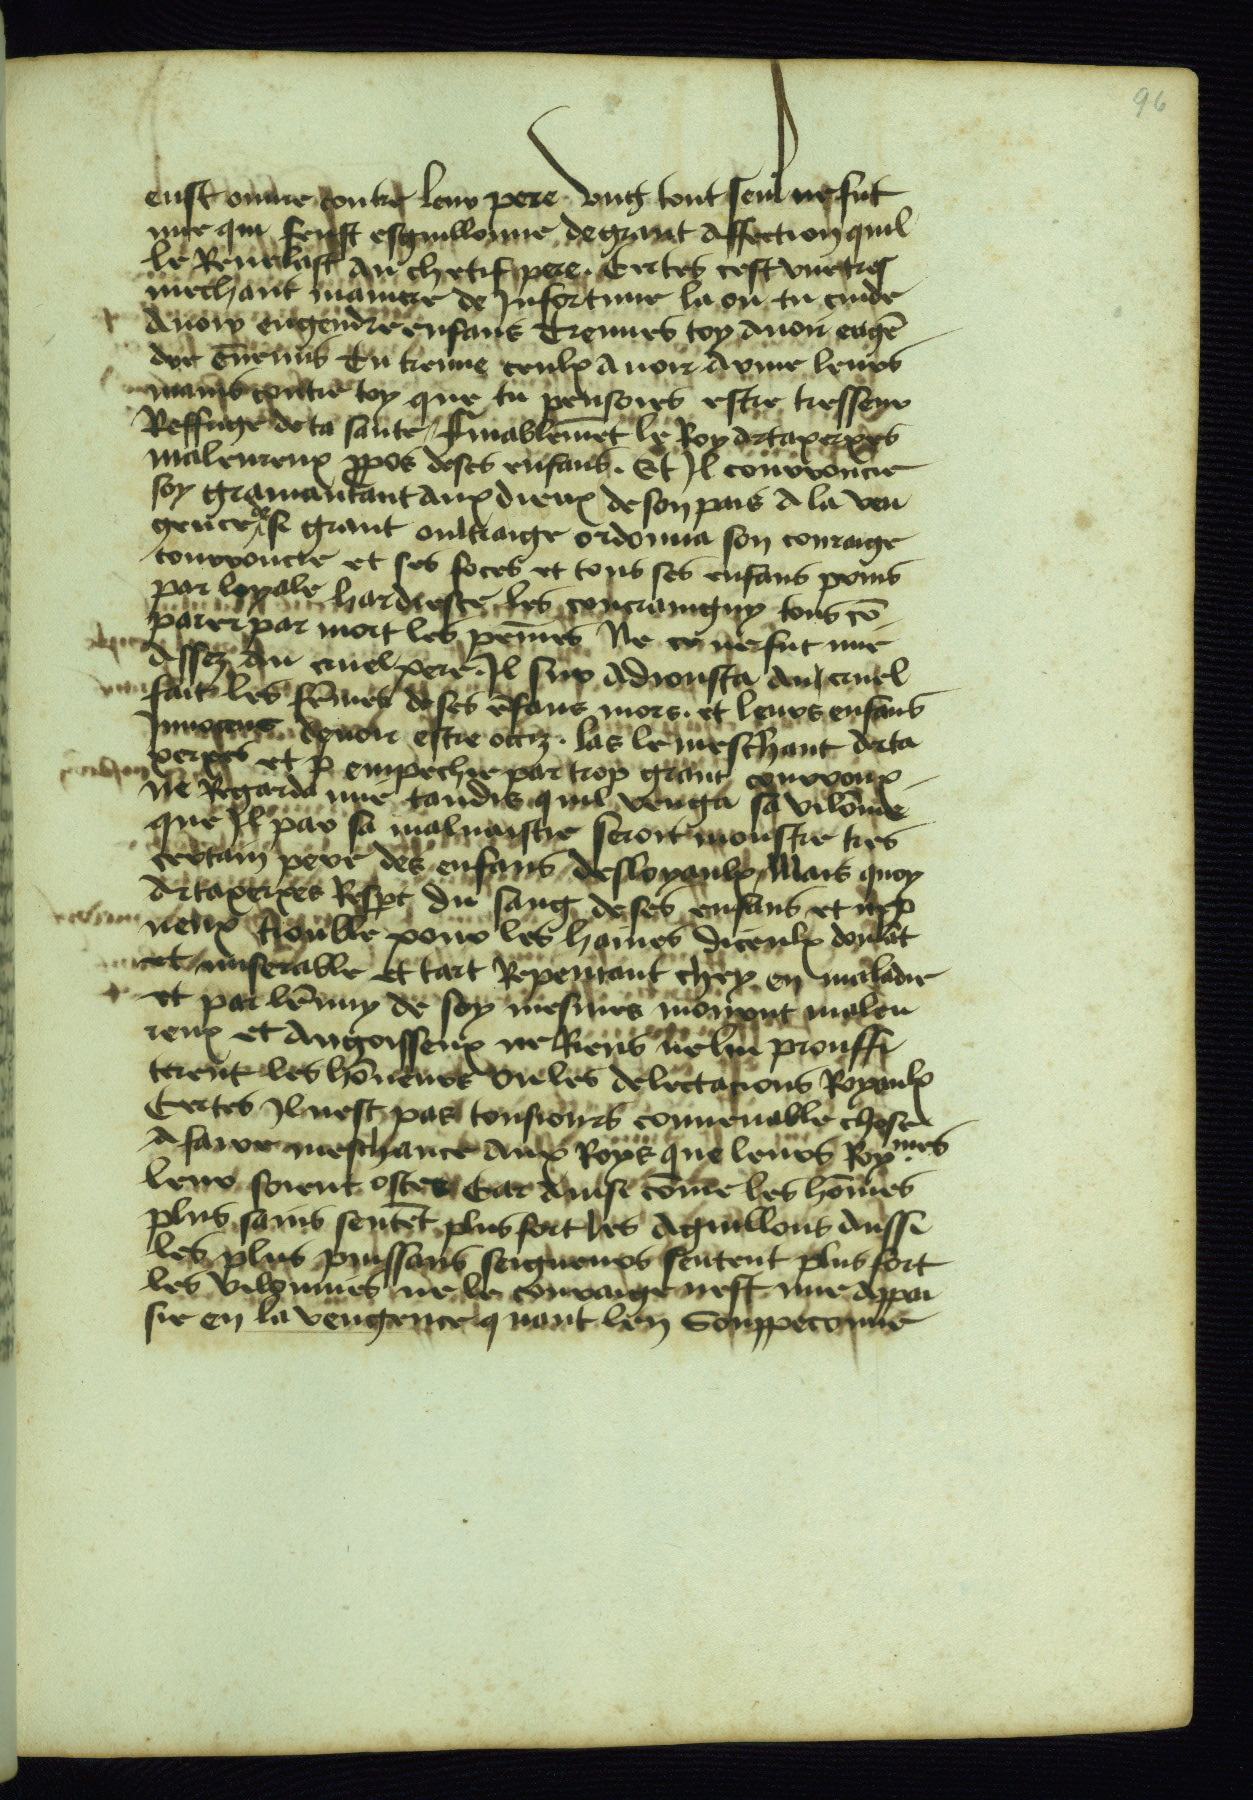 96
eust ouure contre leur pere. vng tout seul ne fut
mie qui feust esguillonne de grant affection quil
le Reuelast au chetif pere. Certes cest vne tres
mechant maniere de Infortune la ou tu cuide
Auoir engendre enfans Treuues toy auoir engē
dre ēnemis Tu treuue ceulx auoir arme leurs
mains contre toy que tu pensoies estre tresseur
Reffuge de ta sante / Finablemēt le Roy Artaxerxes
maleureux ppos de ses enfans. Et Il courroucie
soy gramantant aux dieux de son pais A la ven
gence de si grant oultraige ordonna son couraige
courroucie et ses foces et tous ses enfans prins
par loyale hardieste les contraingny tous cō
parer par mort les pēines Ne ce ne fut mie
Assez au cruel pere. Il sur adiousta au cruel
fait les fēmes de ses ēfans mors. et leurs enfans
Innocens deuoir estre occiz. las le meschant Arta
xerxes et p empechie par trop grant courroux
Ne Regarda mie tandis quil venga sa vilōnie
que Il par sa maluaistie seroit monstre tres
certain pere des enfans desloyaulx / Mais quoy
Artaxerxes du sang de ses enfans et
neux trouble pour les haines diceulx doulāt
et miserable et tart Repentant chey en maladie
et par lēnuy de soy mesmes mourut maleu
reux et Angoisseux ne Riens ne lui prouffi
terent les hōneurs ou les delectacions Royaulx
Certes Il nest pas tousiours conuenable chose
A faire meschance aux Roys que leurs Roymes
leur soient ostes Car Ainsi cōme les hōmes
plus sains sentēt plus fort les aguillons Aussi
les plus puissans seigneurs sentent plus fort
les vilonnies ne le couraige nest mie appai
sie en la vengence quant len Souppeconne